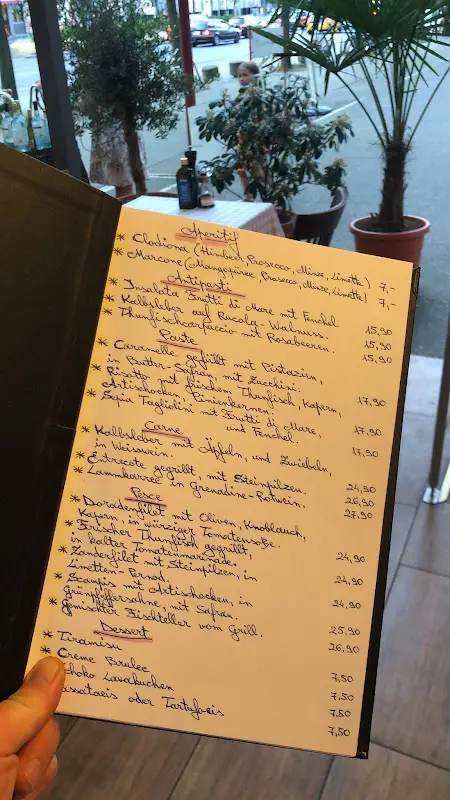 Aperitif
* Clodiona (Himbeer, Prosecco, Minze, Limette) 7,-
* Marcone (Mangopüree, Prosecco, Minze, Limette) 7,-
Antipasti
* Insalata Frutti di Mare mit Fenchel 15,90
* Kalbsleber auf Rucola-Walnuss. 15,90
* Thunfischcarpaccio mit Rosabeeren. 15,90
Paste
* Caramelle gefüllt mit Pistazien,
in Butter-Safran, mit Zucchini. 17,90
* Risotto mit frischem Thunfisch, Kapern,
Artischocken, Pinienkernen. 17,90
* Sepia Tagliolini mit Frutti di Mare,
und Fenchel. 17,90
Carne
* Kalbsleber mit Äpfeln, und Zwiebeln,
in Weisswein. 24,90
* Entrecote gegrillt, mit Steinpilzen. 26,90
* Lammkarree in Grenadine-Rotwein. 27,90
Pesce
* Doradenfilet mit Oliven, Knoblauch,
Kapern, in würziger Tomatensoße. 24,90
* Frischer Thunfisch gegrillt,
in kalter Tomatenmarinade. 24,90
* Zanderfilet mit Steinpilzen, in
Limetten-Pernod. 24,90
* Scampis mit Artischocken, in
Grünpfeffersahne, mit Safran. 25,90
* Gemischter Fischteller vom Grill. 26,90
Dessert
* Tiramisu 7,50
* Creme Brulee 7,50
Schoko Lavakuchen 7,50
assataeis oder Tartufoeis 7,50